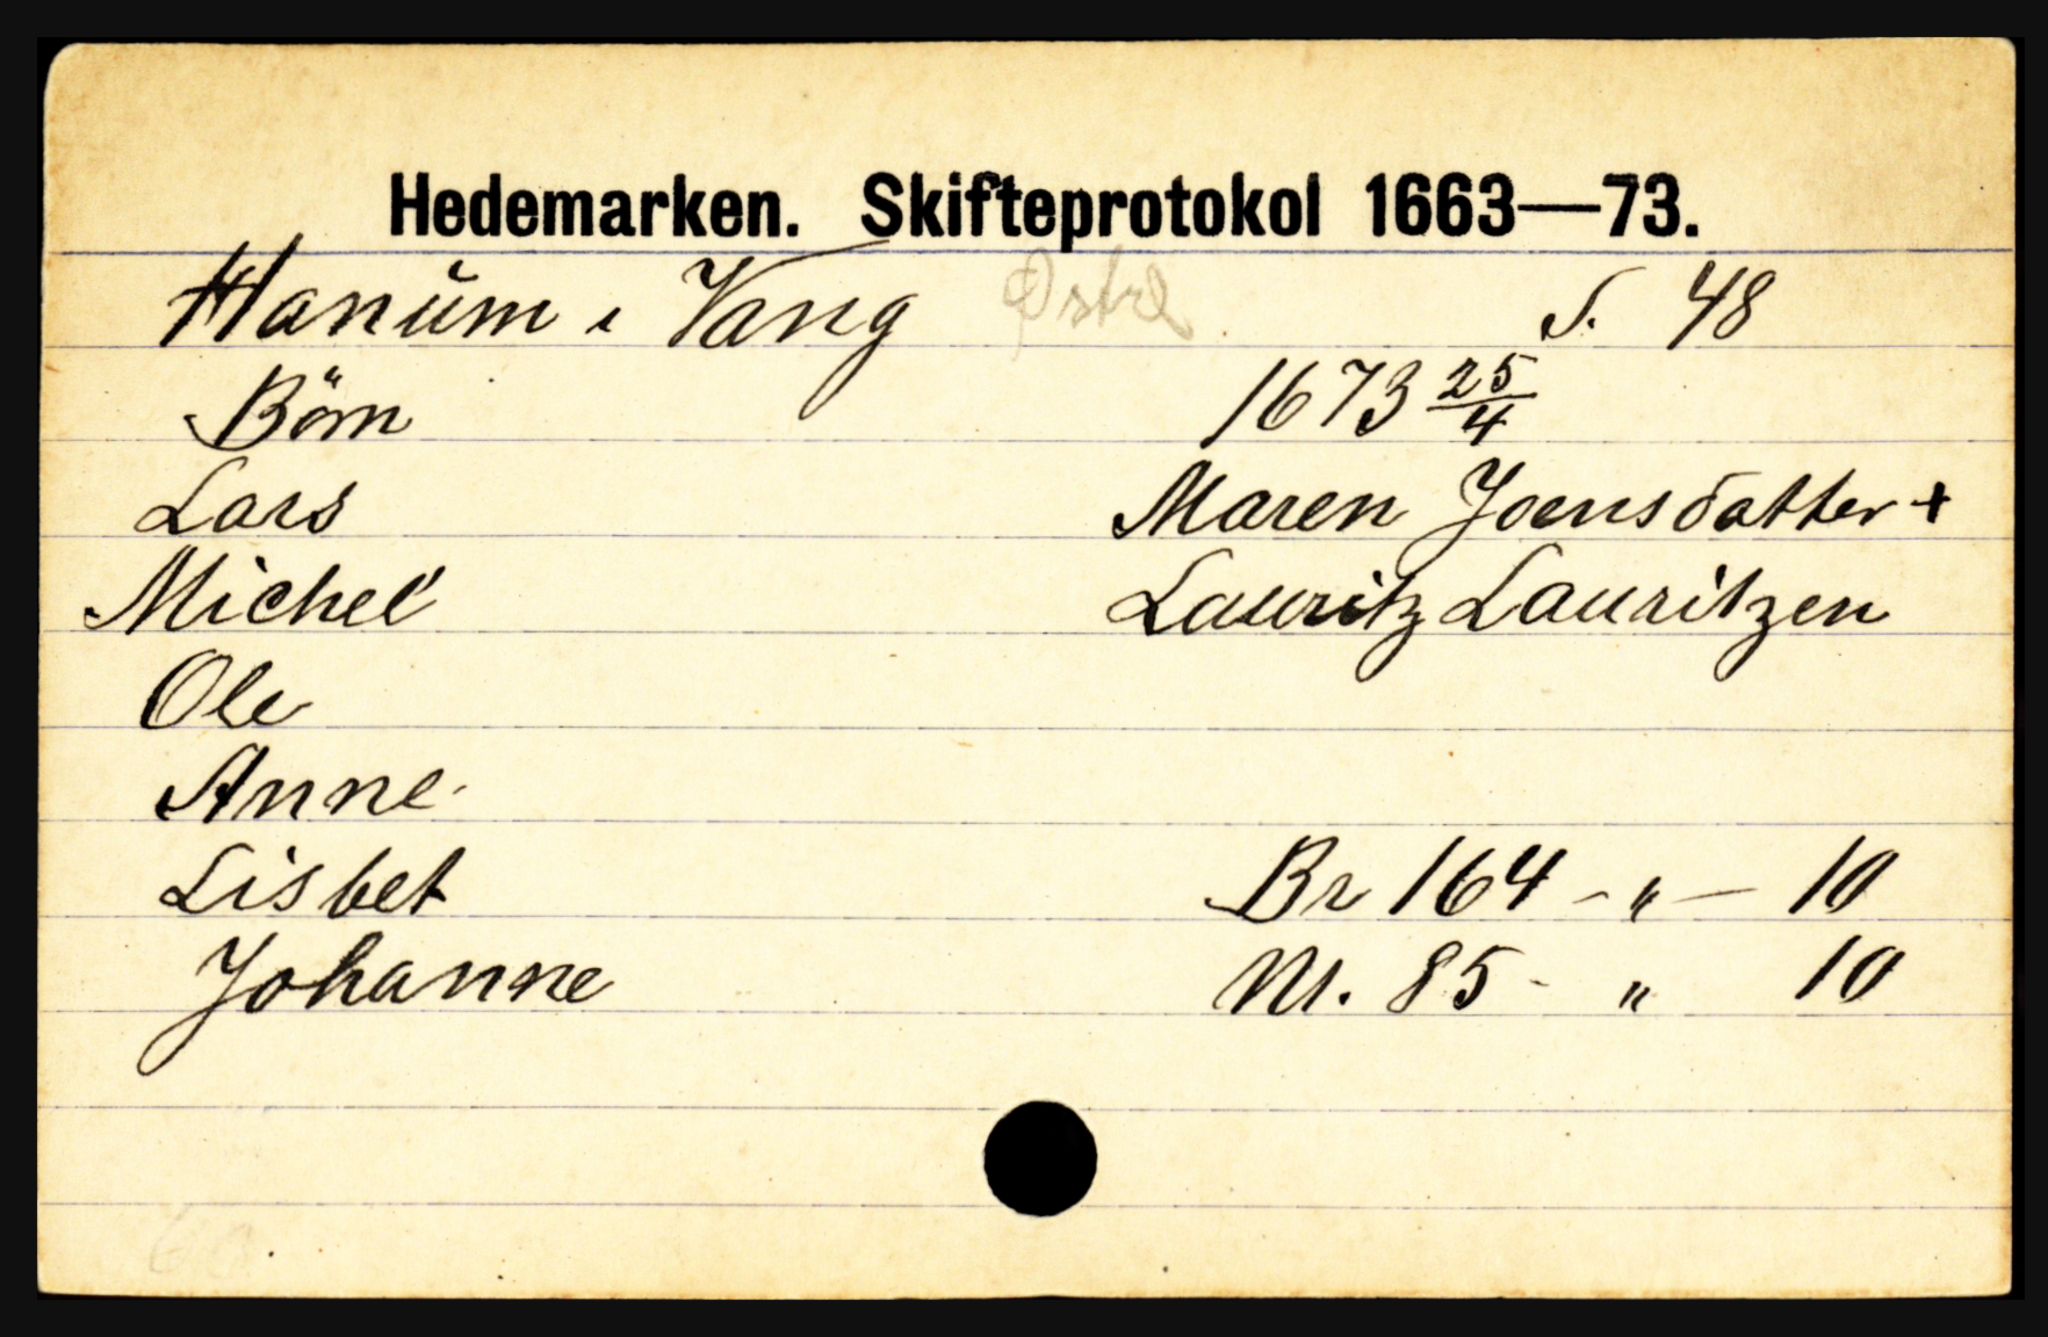 Hedemarken. Skifteprotokol 1663—73.
Hanum i Vang Østre S. 48
Börn 1673 25/4
Lars Maren Joensdatter +
Michel Lauritz Lauritzen
Ole
Anne
Lisbet Br 164 - " - 10
Johanne Nl. 85 - " 10